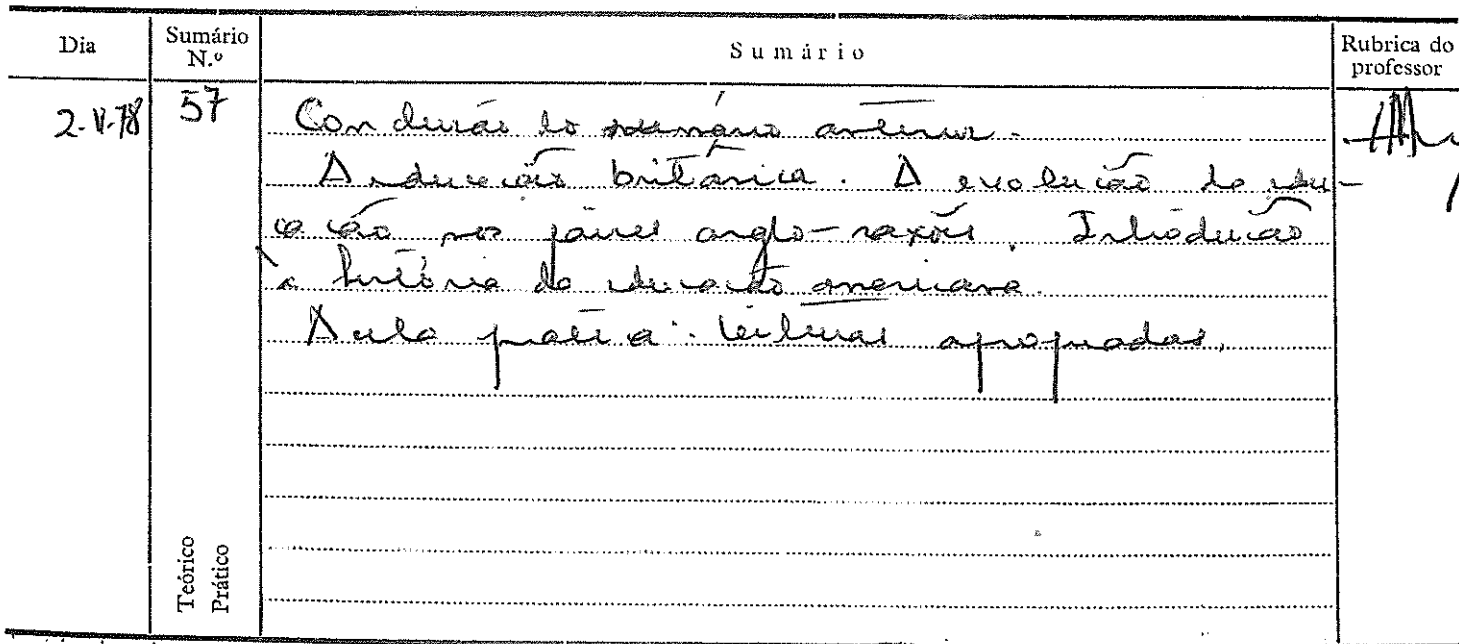 Dia
Sumário N.º
Sumário
Rubrica do professor
2-V-78
57
Conclusão do sumário anterior.
A educação britânica. A evolução da edu-
cação nos países anglo-saxões. Introdução
à história da educação americana.
Aula prática: leituras apropriadas.
Teórico
Prático